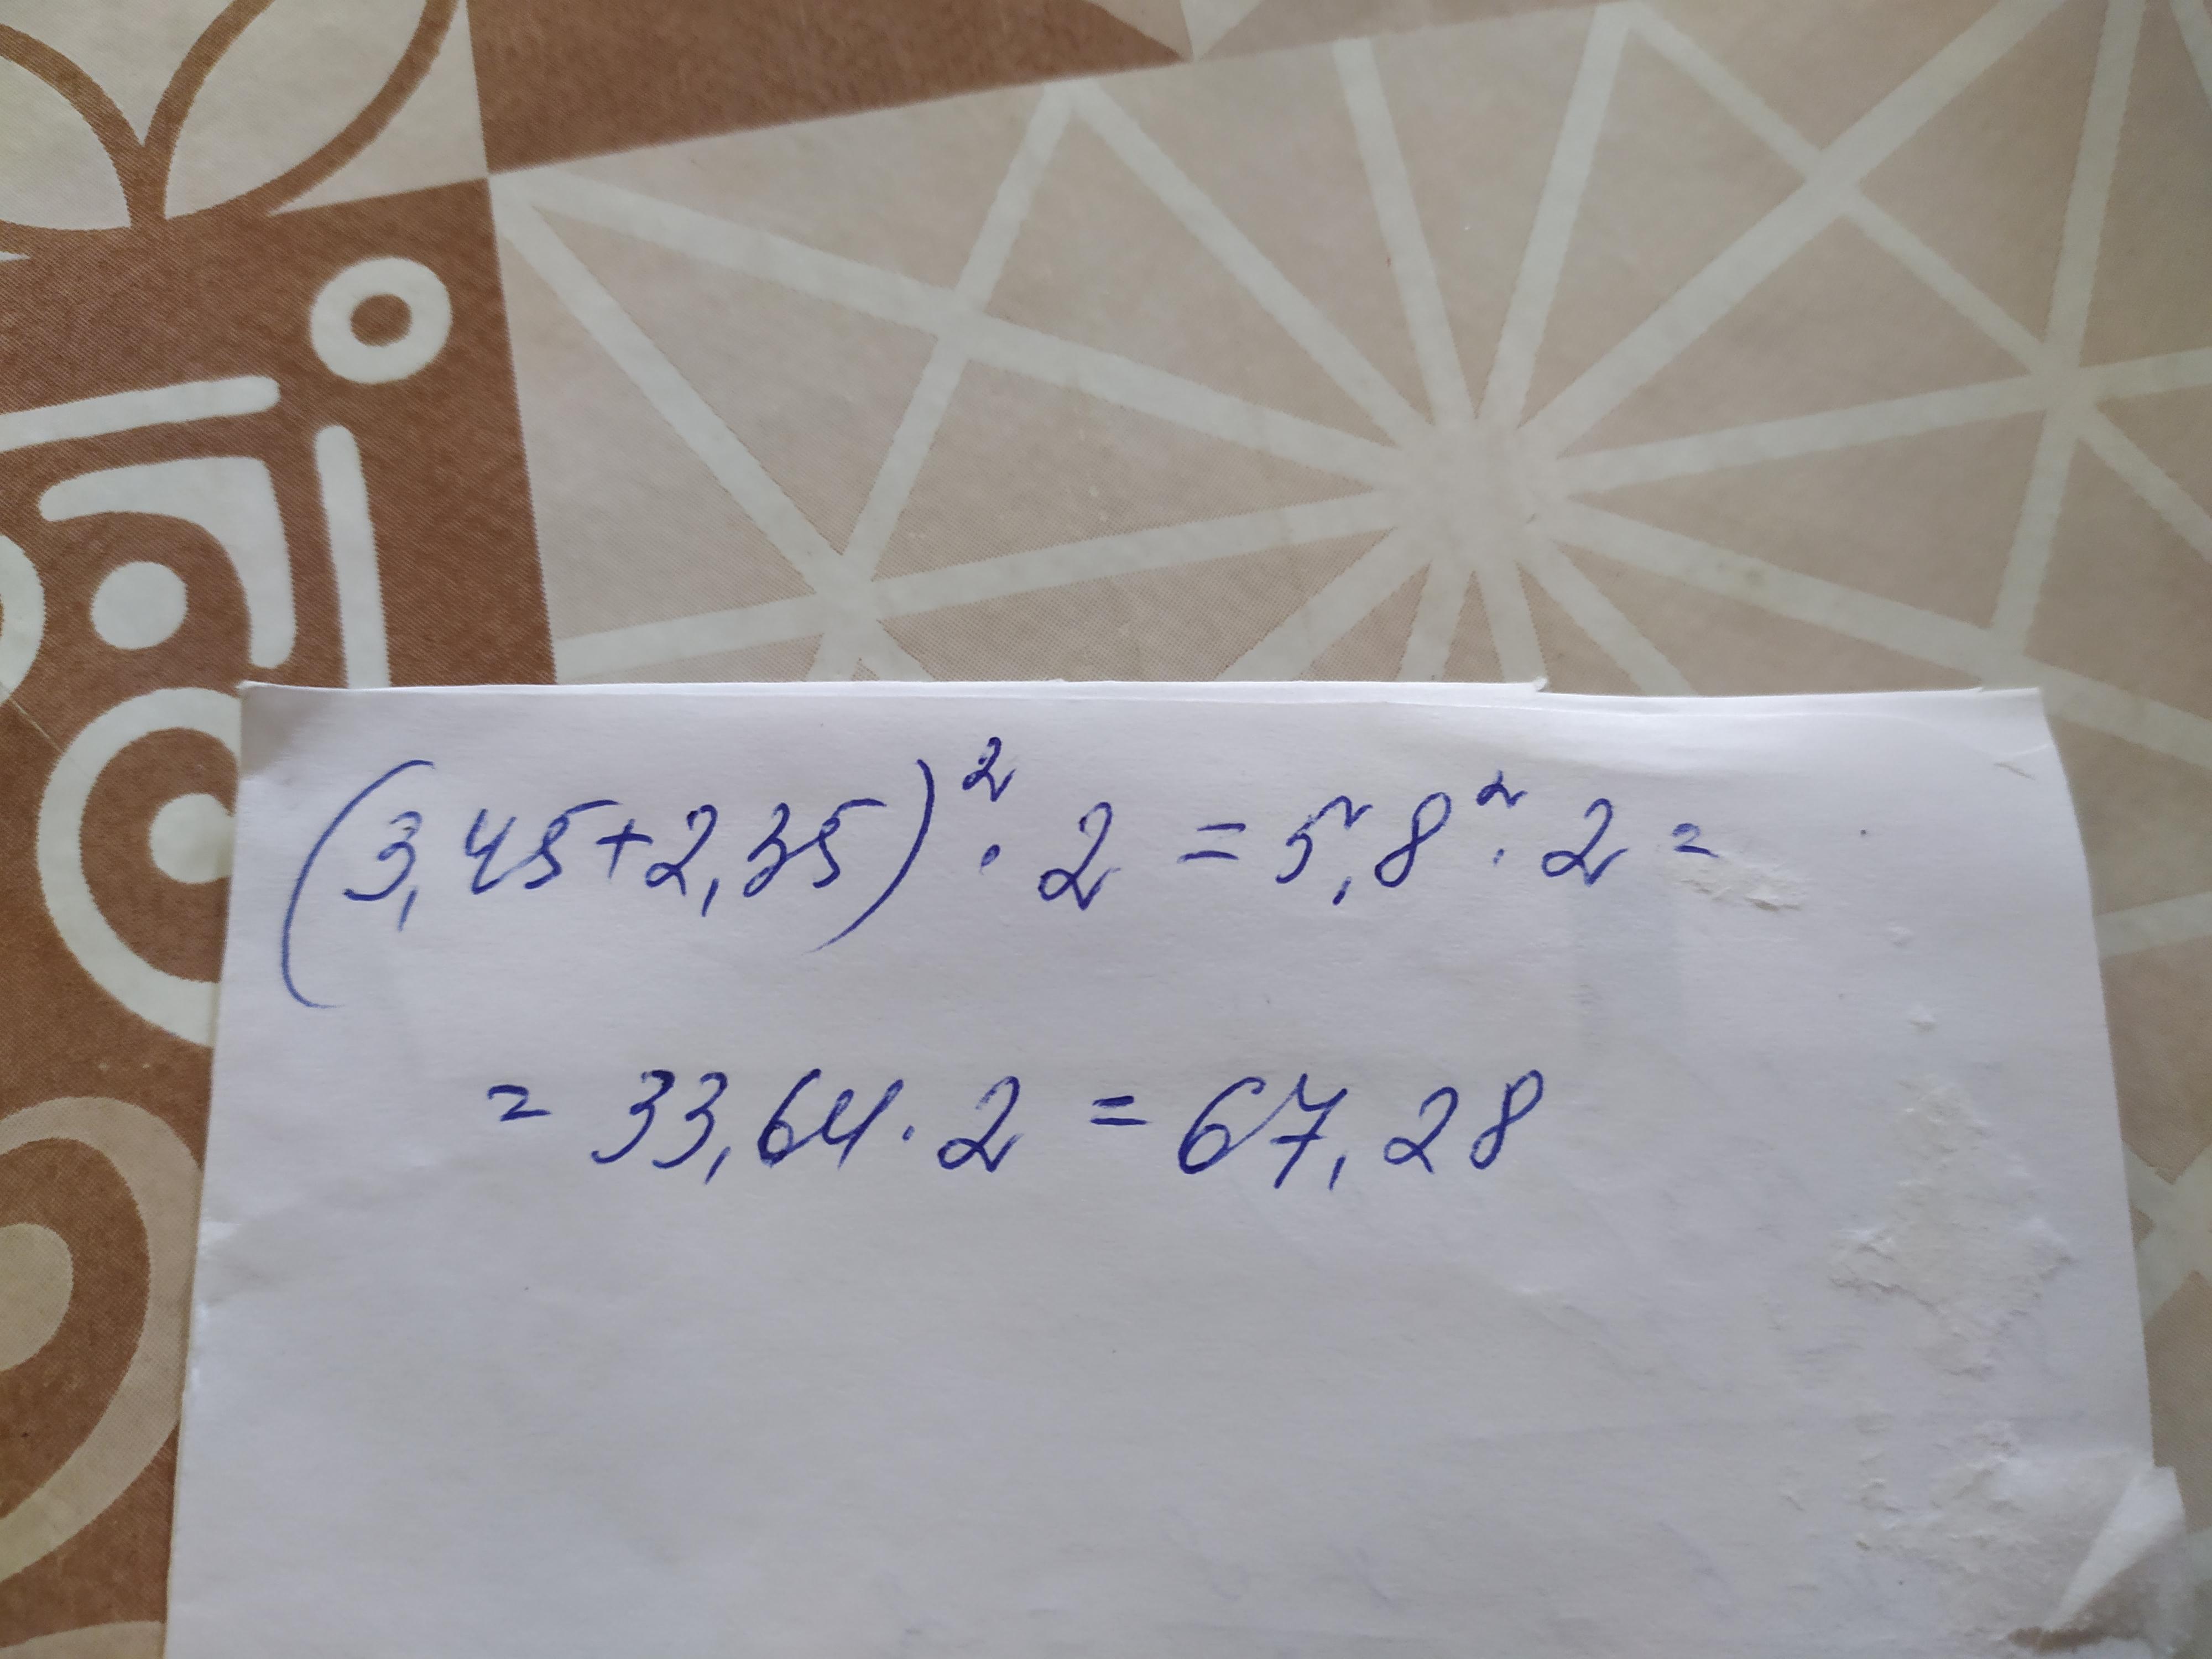 (3,45+2,35)² · 2 = 5,8² · 2 =
= 33,64 · 2 = 67,28